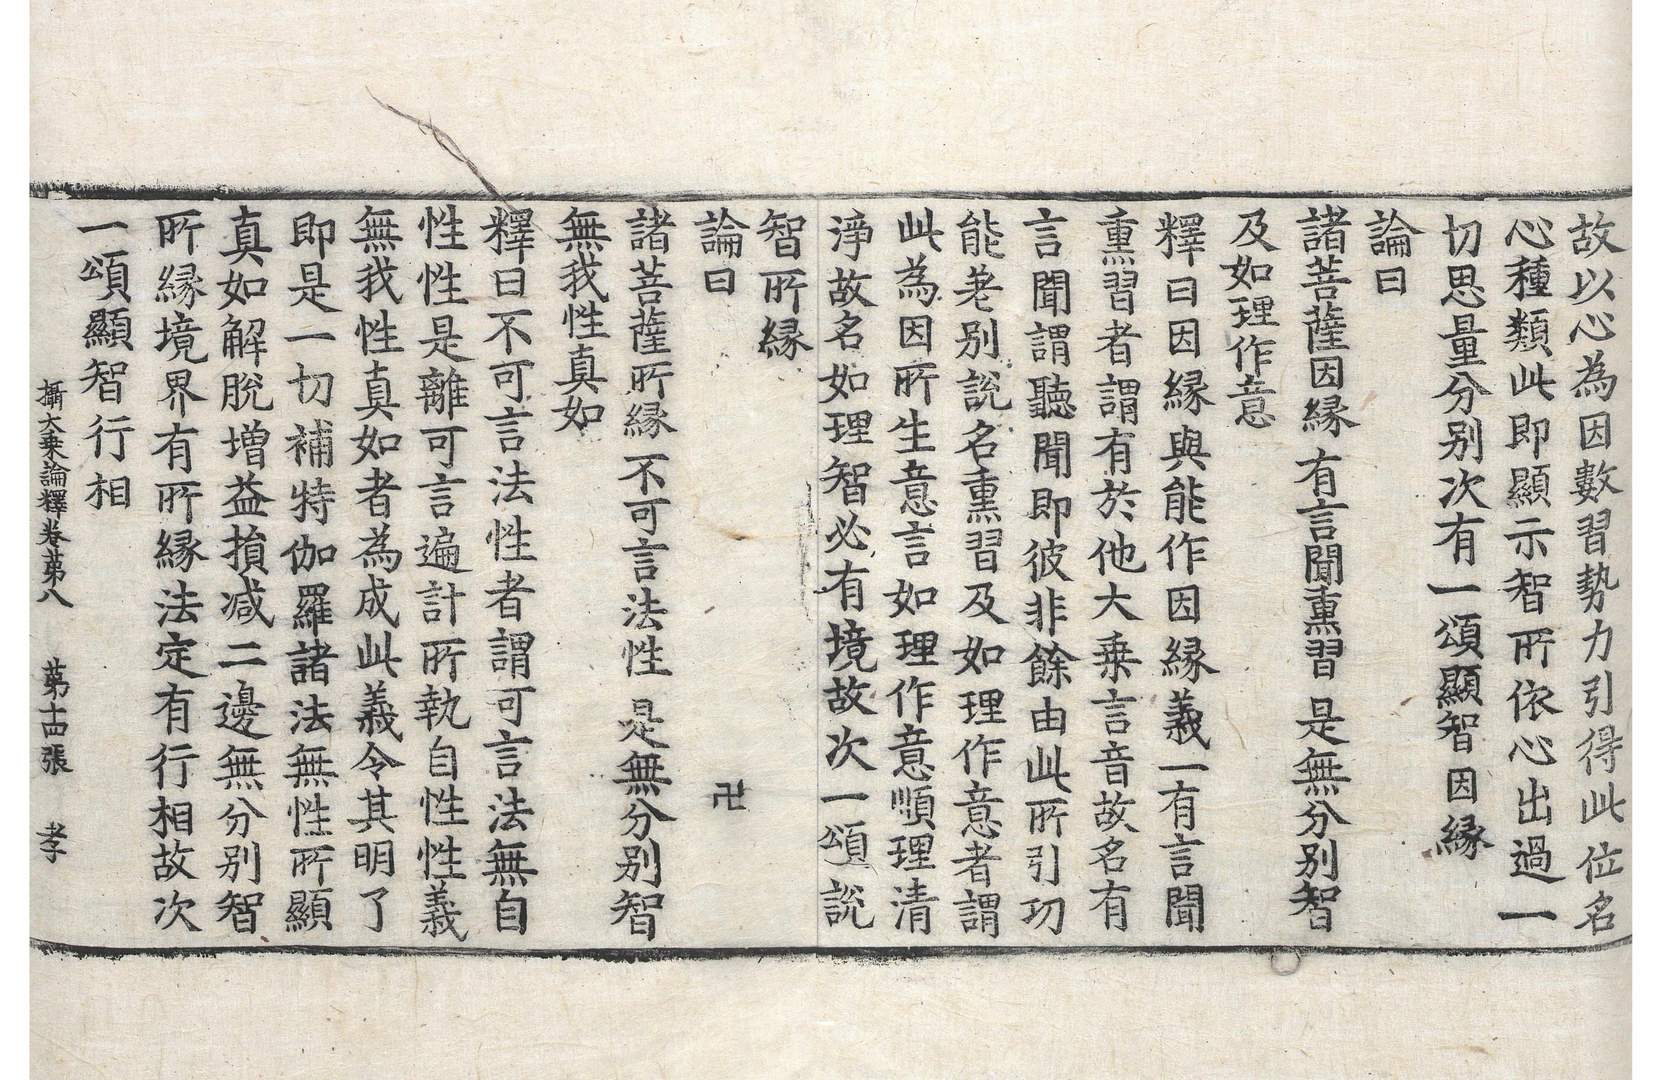 故以心為因數習勢力引得此位名
心種類此即顯示智所依心出過一
切思量分别次有一頌顯智因縁
論曰
諸菩薩因縁 有言聞熏習 是無分别智
及如理作意
釋曰因縁與能作因縁義一有言聞
熏習者謂有於他大乗言音故名有
言聞謂聽聞即彼非餘由此所引㓛
能差别說名熏習及如理作意者謂
此為因所生意言如理作意順理清
淨故名如理智必有境故次一頌說
智所縁
論曰 卍
諸菩薩所縁 不可言法性 是無分别智
無我性真如
釋曰不可言法性者謂可言法無自
性性是離可言遍計所執自性性義
無我性真如者為成此義令其明了
即是一切補特伽羅諸法無性所顯
真如解脫增益損减二邊無分别智
所縁境界有所縁法定有行相故次
一頌顯智行相
攝大乗論釋卷苐八 苐十四張 孝